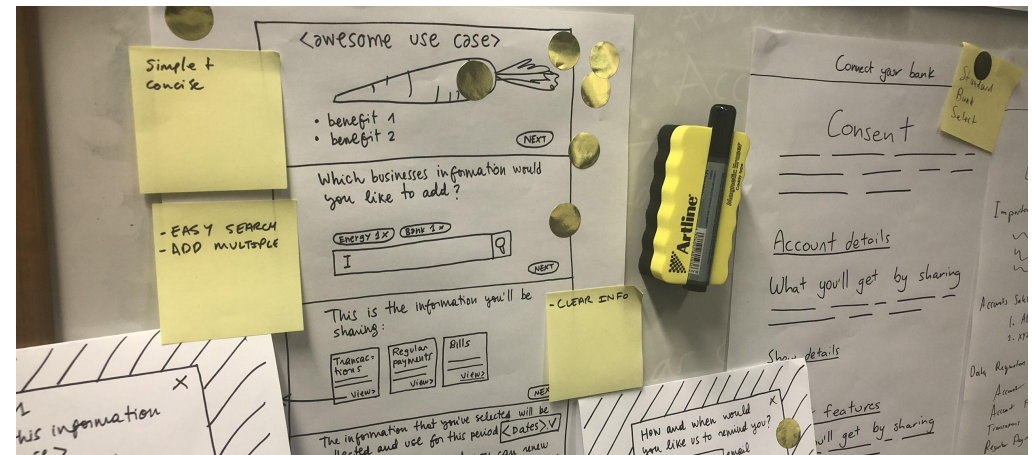 Simple +
concise
- EASY SEARCH
- ADD MULTIPLE
<awesome use case>
• benefit 1
• benefit 2
NEXT
Which businesses information would
you like to add?
Energy 1 x
Bank 1 x
NEXT
This is the information you'll be
sharing:
Transac-
tions
View>
Regular
payments
View>
Bills
View>
NEX
The information that you've selected will be
and use for this period <Dates> ✓
can renew
- CLEAR INFO
x
his information
Artline
Magnetic Eraser
How and when would
you like us to remind you?
x
email
Connect your bank
Standard
Bank
Select
Consent
Account details
What you'll get by sharing
Show details
features
will get by sharing
Accounts
Data
Account
Account